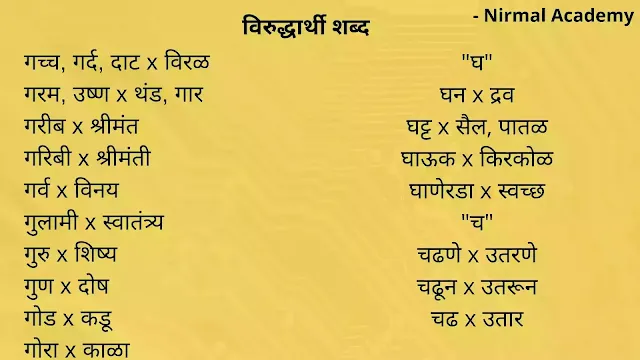 - Nirmal Academy
विरुद्धार्थी शब्द
गच्च, गर्द, दाट x विरळ
गरम, उष्ण x थंड, गार
गरीब x श्रीमंत
गरिबी x श्रीमंती
गर्व x विनय
गुलामी x स्वातंत्र्य
गुरु x शिष्य
गुण x दोष
गोड x कडू
गोरा x काळा
"घ"
घन x द्रव
घट्ट x सैल, पातळ
घाऊक x किरकोळ
घाणेरडा x स्वच्छ
"च"
चढणे x उतरणे
चढून x उतरून
चढ x उतार